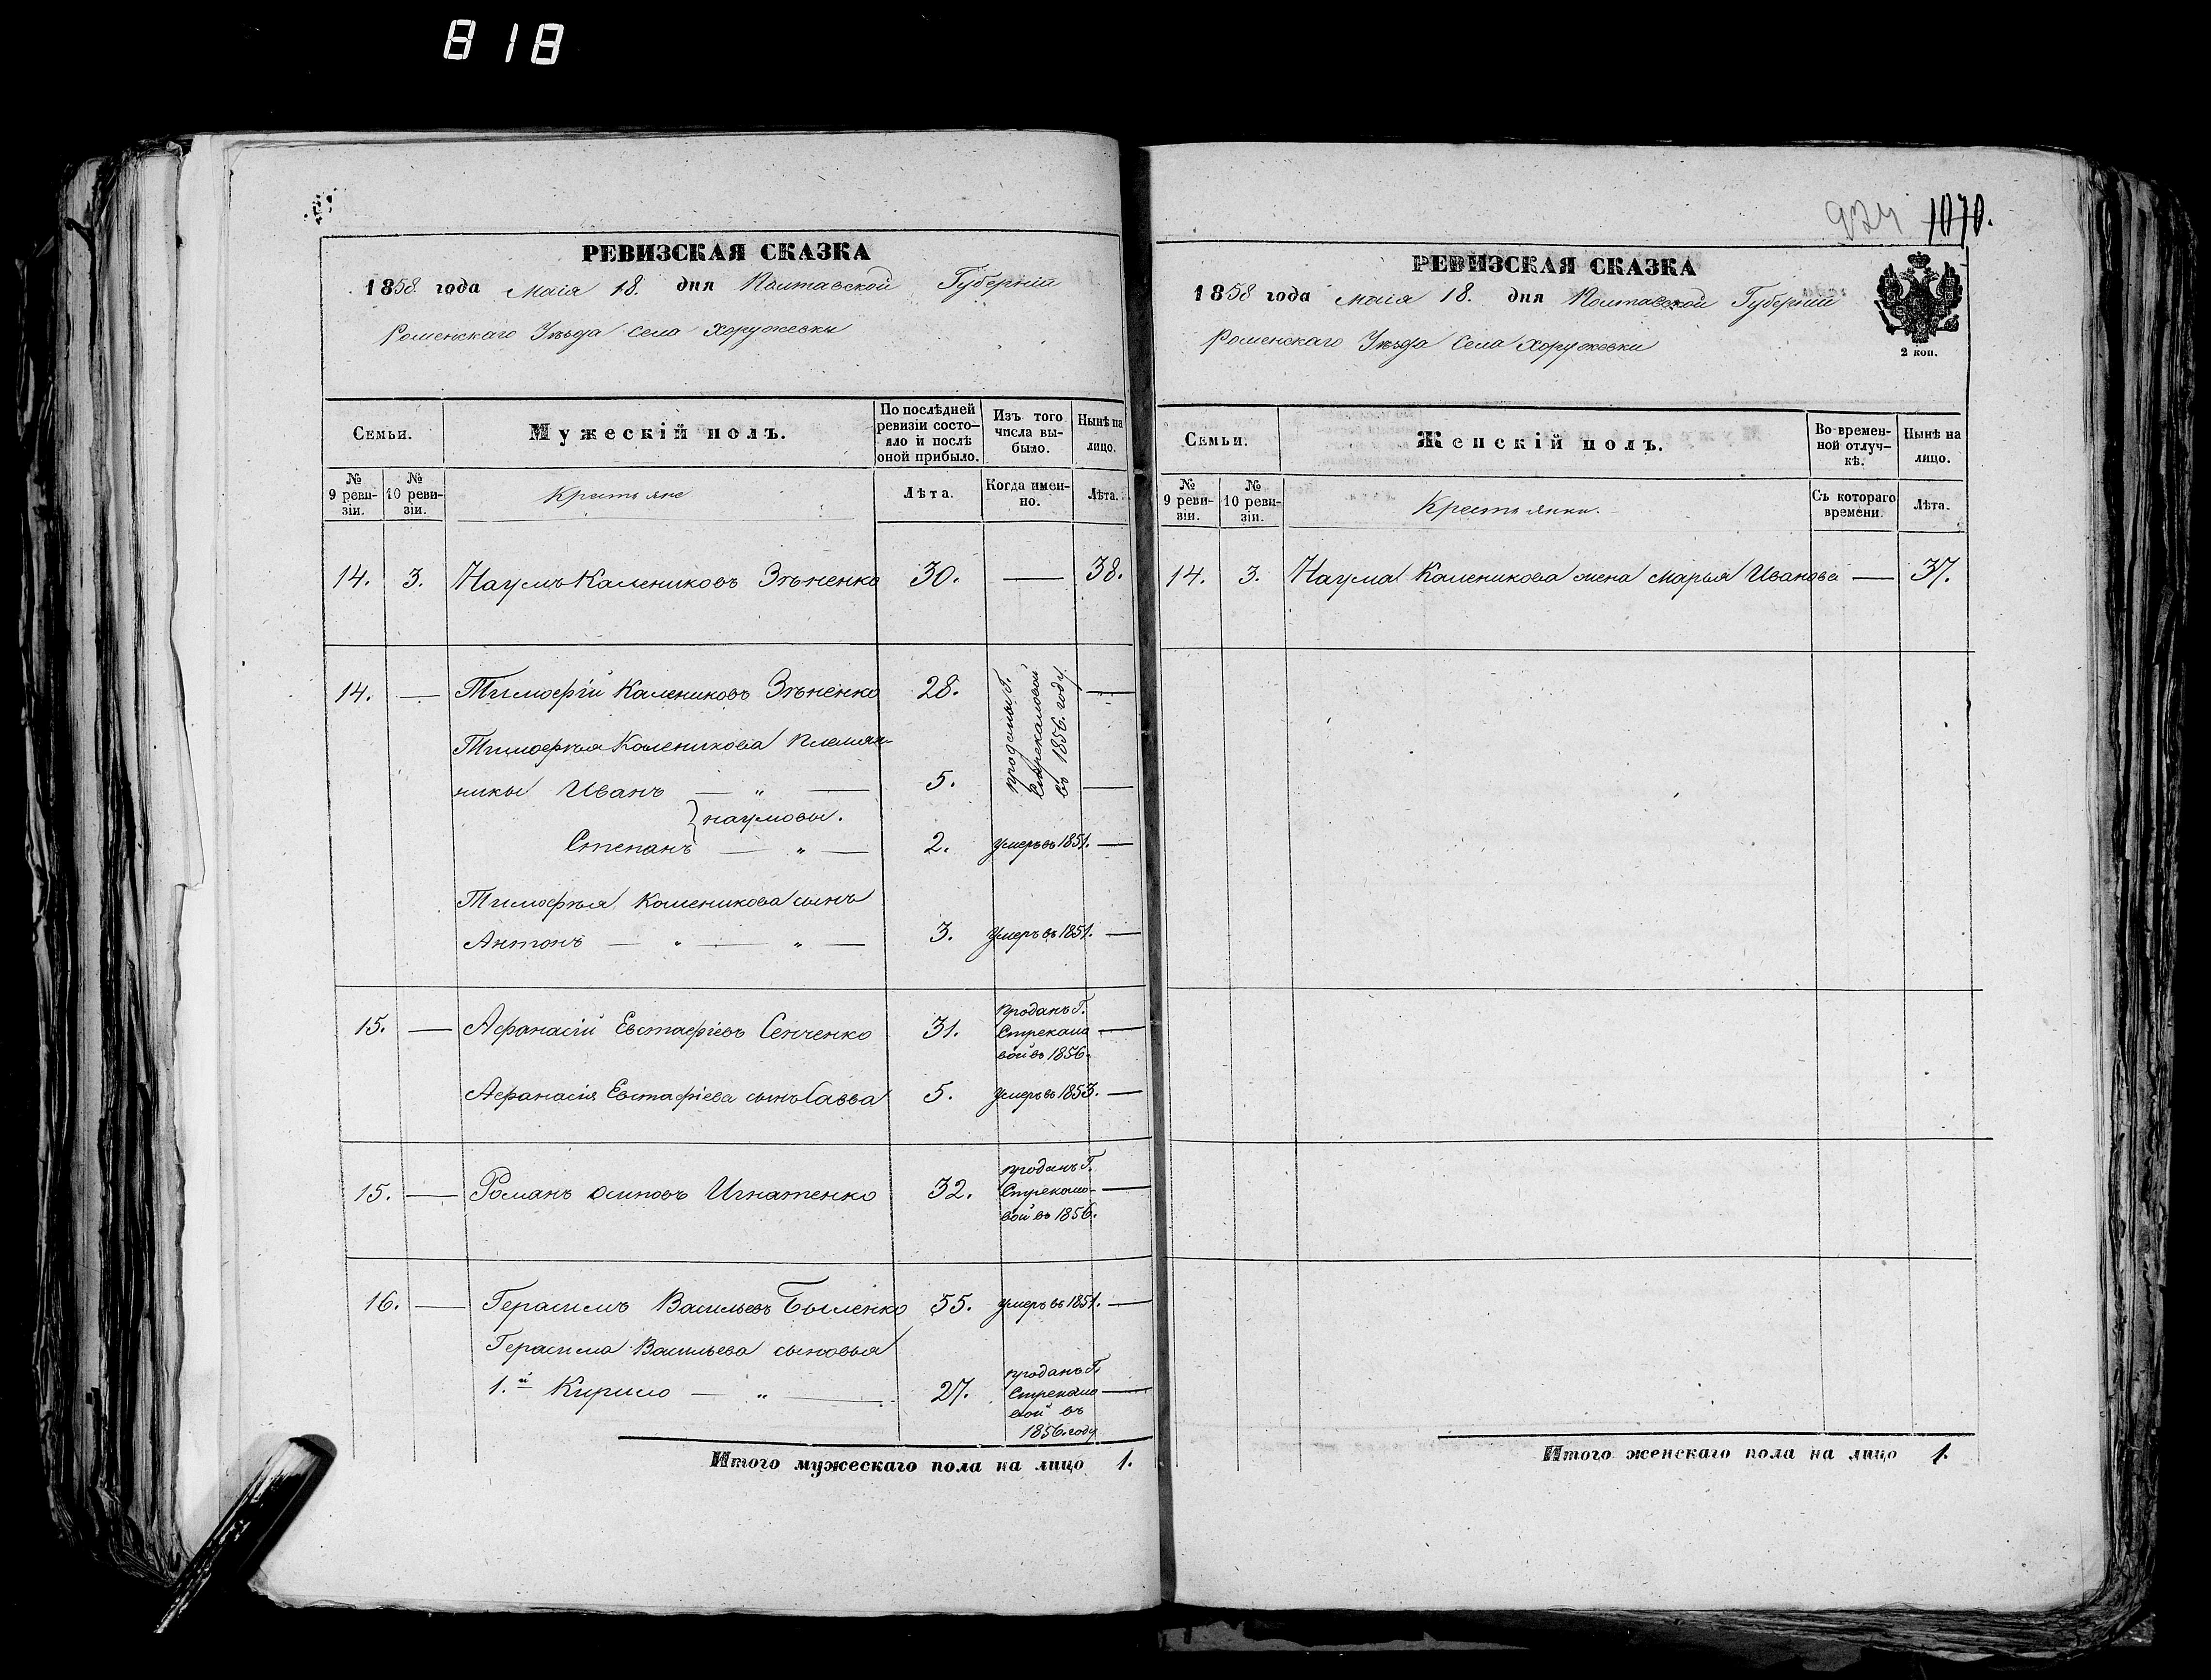 818
РЕВИЗСКАЯ СКАЗКА
1858. года Маія 18. дня Полтавской Губерніи
Роменскаго Уѣзда Села Хоружевки
Семьи.
Мужескій полъ.
По послѣдней ревизіи состо-
яло и послѣ оной прибыло.
Изъ того числа вы-
было.
Нынѣ на лицо.
№ 9 реви-
зіи.
№ 10 реви-
зіи.
Крестьяне
Лѣта.
Когда имен-
но.
Лѣта.
14. 3. Наумъ Калениковъ Зѣненко 30. — 38.
14. — Тимофій Калениковъ Зѣненко 28. —
проданы Г.
Стрекаловой
въ 1856. году.
Тимофѣя Каленикова племян-
ники Иванъ — „ — 5. —
} наумовы.
Степанъ — „ — 2. умеръ въ 1851. —
Тимофѣя Каленикова сынъ
Антонъ — „ — „ — 3. Умеръ въ 1851. —
15. — Афанасій Евстафіевъ Сенченко 31. проданъ Г.
Стрекало
вой въ 1856. —
Афанасія Евстафіева сынъ Савва 5. Умеръ въ 1853. —
15. — Романъ Осиповъ Игнатенко 32. проданъ Г.
Стрекало-
вой въ 1856. —
16. — Герасимъ Васильевъ Быленко 55. умеръ въ 1851. —
Герасима Васильева сыновья
1.й Кирило — „ — 27. проданъ Г.
Стрекало
вой въ
1856. году —
Итого мужескаго пола на лицо 1.
924 1070.
РЕВИЗСКАЯ СКАЗКА
1858 года Маія 18. дня Полтавской Губерніи
2 коп.
Роменскаго Уѣзда Села Хоружевки
Семьи.
Женскій полъ.
Во времен-
ной отлуч-
кѣ.
Нынѣ на лицо.
№ 9 реви-
зіи.
№ 10 реви-
зіи.
Крестьянки.
Съ котораго времени.
Лѣта.
14. 3. Наума Каленикова жена Марья Иванова — 37.
Итого женскаго пола на лицо 1.